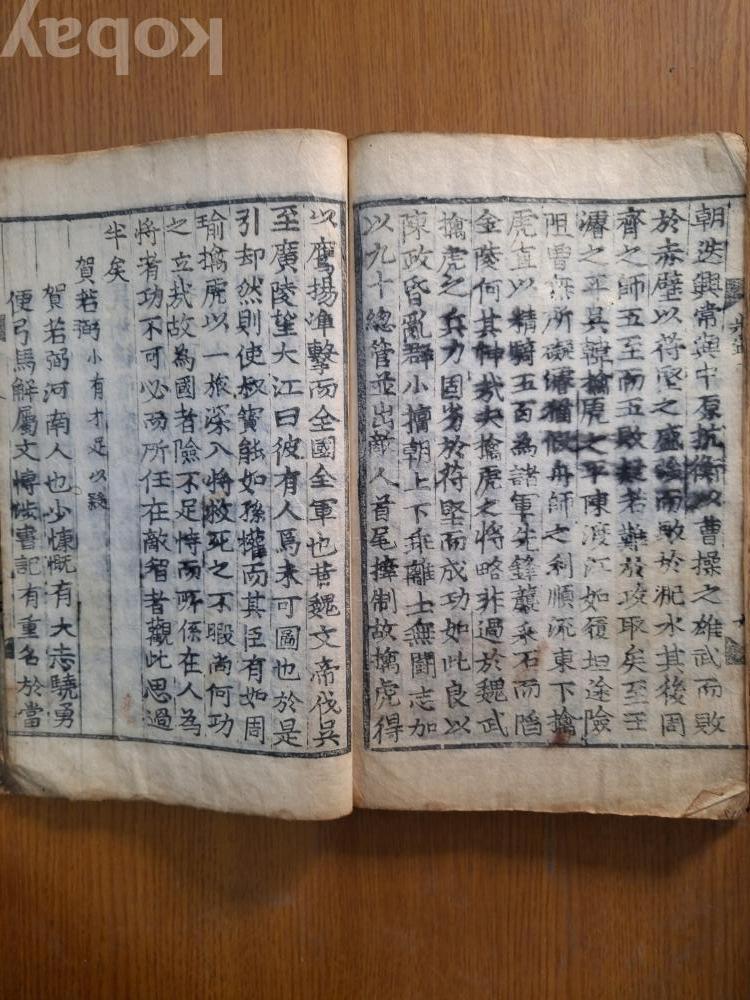 朝迭興常與中原抗衡以曹操之雄武而敗
於赤壁以苻堅之盛強而敗於淝水其後周
齊之師五至而五敗若難於攻取矣至王
濬之平吳韓擒虎之平陳渡江如履坦途險
阻曾無所礙濬猶假舟師之利順流東下擒
虎直以精騎五百為諸軍先鋒襲采石而陷
金陵何其神哉夫擒虎之將略非過於魏武
擒虎之兵力固劣於苻堅而成功如此良以
陳政昏亂群小擅朝上下乖離士無鬪志加
以九十總管並出敵人首尾掣制故擒虎得
以鷹揚隼擊而全國全軍也昔魏文帝伐吳
至廣陵望大江曰彼有人焉未可圖也於是
引却然則使叔寶能如孫權而其臣有如周
瑜擒虎以一旅深入將救死之不暇尚何功
之立哉故為國者險不足恃而所係在人為
將者功不可必而所任在敵智者觀此思過
半矣
賀若弼 小有才足以殺
賀若弼河南人也少慷慨有大志驍勇
便弓馬解屬文博涉書記有重名於當
kobay